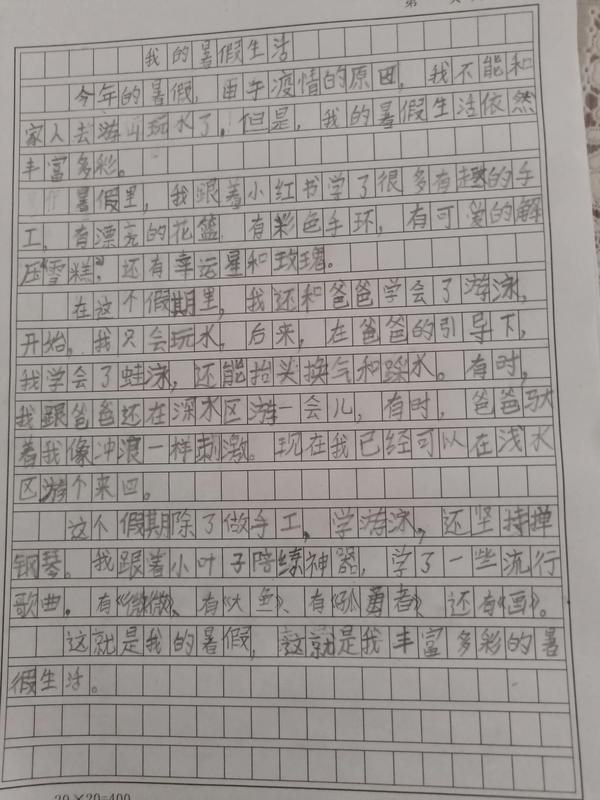 我的暑假生活
今年的暑假，由于疫情的原因，我不能和
家人去游山玩水了。但是，我的暑假生活依然
丰富多彩。
暑假里，我跟着小红书学了很多有趣的手
工，有漂亮的花篮，有彩色手环，有可爱的解
压“雪糕”，还有幸运星和玫瑰。
在这个假期里，我还和爸爸学会了游泳，
开始，我只会玩水，后来，在爸爸的引导下，
我学会了蛙泳，还能抬头换气和踩水。有时，
我跟爸爸还在深水区游一会儿，有时，爸爸驮
着我像冲浪一样刺激。现在我已经可以在浅水
区游个来回。
这个假期除了做手工，学游泳，还坚持掸
钢琴。我跟着小叶子陪练神器，学了一些流行
歌曲。有《微微》、有《大鱼》、有《孤勇者》还有《画》。
这就是我的暑假，这就是我丰富多彩的暑
假生活。
20×20=400